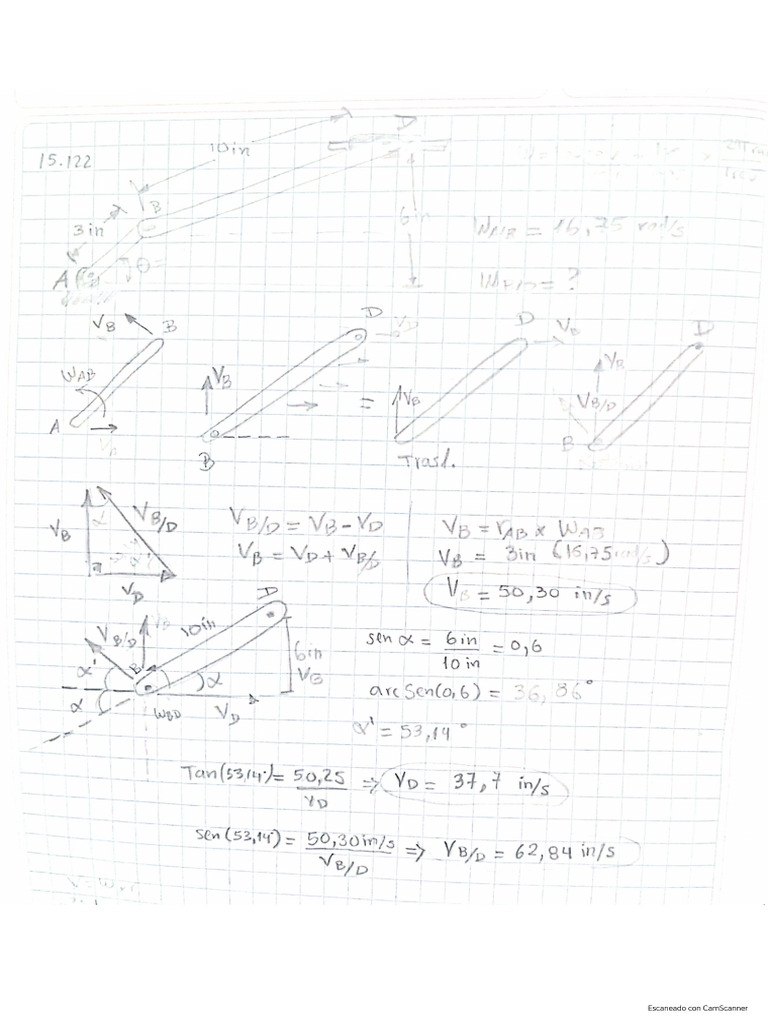 15.122
10in
D
B
3in
6in
A
θ=
W_AB = 16,75 rad/s
W_BD = ?
V_B
B
W_AB
A
D
V_D
V_B
B
=
D
V_B
V_B
Trasl.
D
V_B
V_B/D
B
V_B
α
V_B/D
V_D
V_B/D = V_B - V_D
V_B = V_D + V_B/D
V_B = r_AB x W_AB
V_B = 3in (16,75 rad/s)
V_B = 50,30 in/s
V_B/D
10in
D
6in
V_B
α'
B
α
α
W_BD
V_D
sen α = 6in/10in = 0,6
arcSen(0,6) = 36,86°
α' = 53,14°
Tan(53,14°) = 50,25/V_D => V_D = 37,7 in/s
sen(53,14°) = 50,30in/s/V_B/D => V_B/D = 62,84 in/s
Escaneado con CamScanner